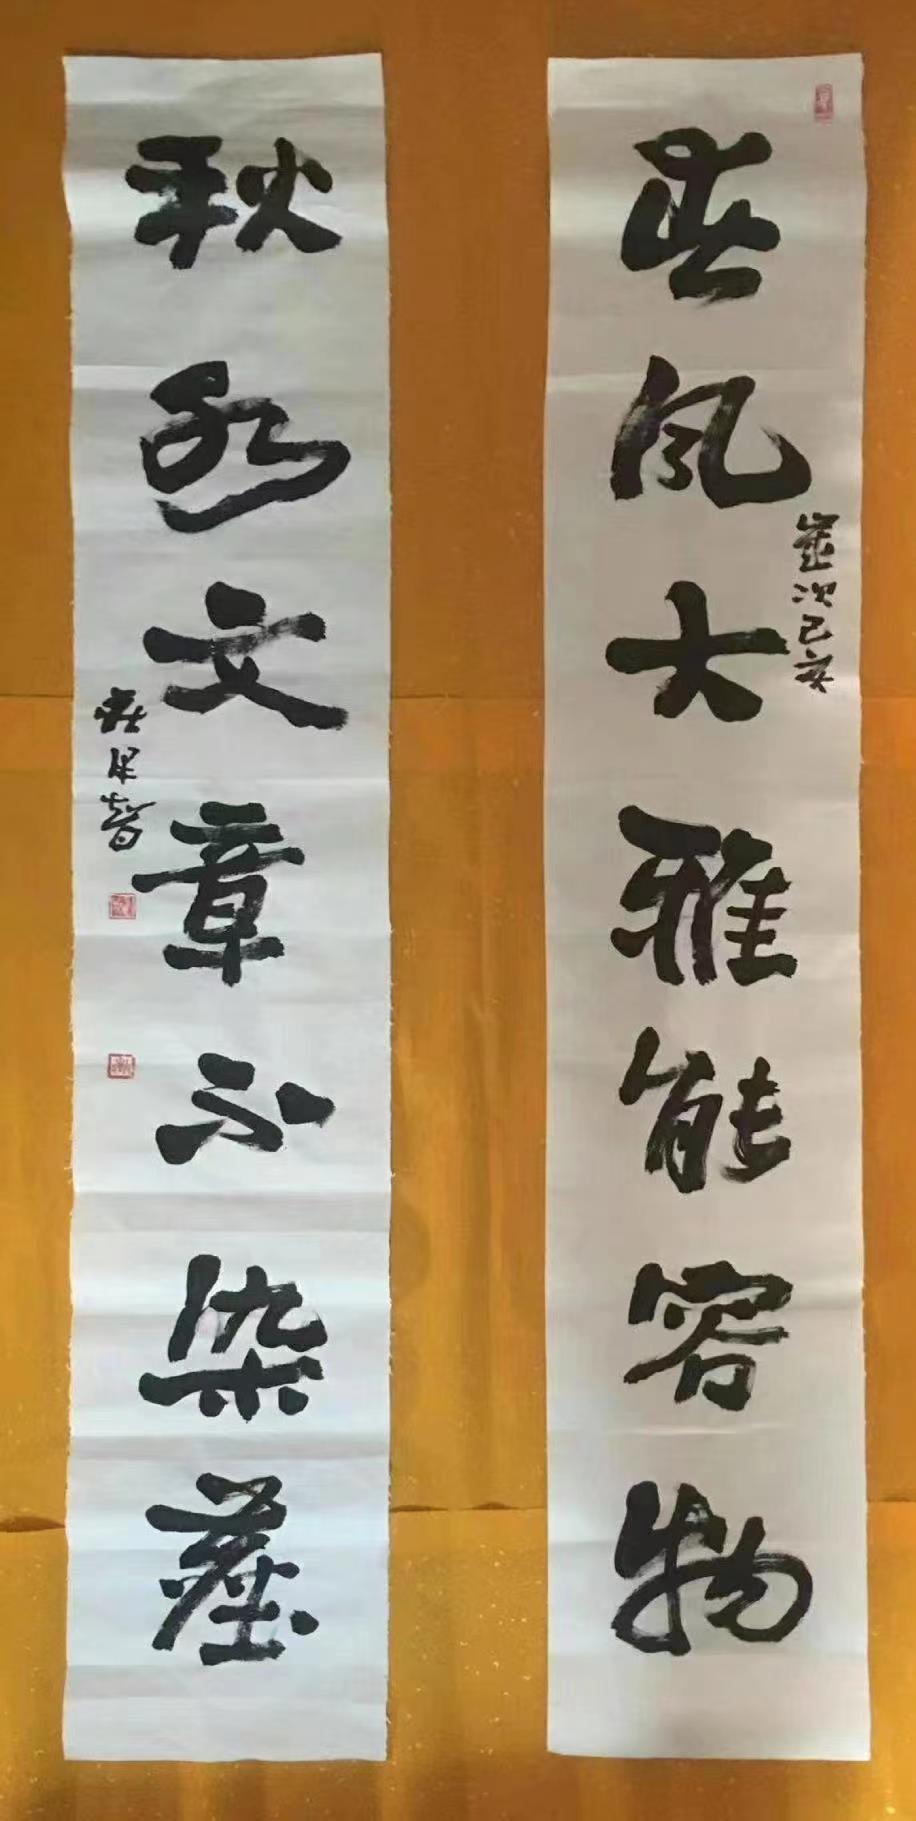 春风大雅能容物
歲次己亥
秋水文章不染塵